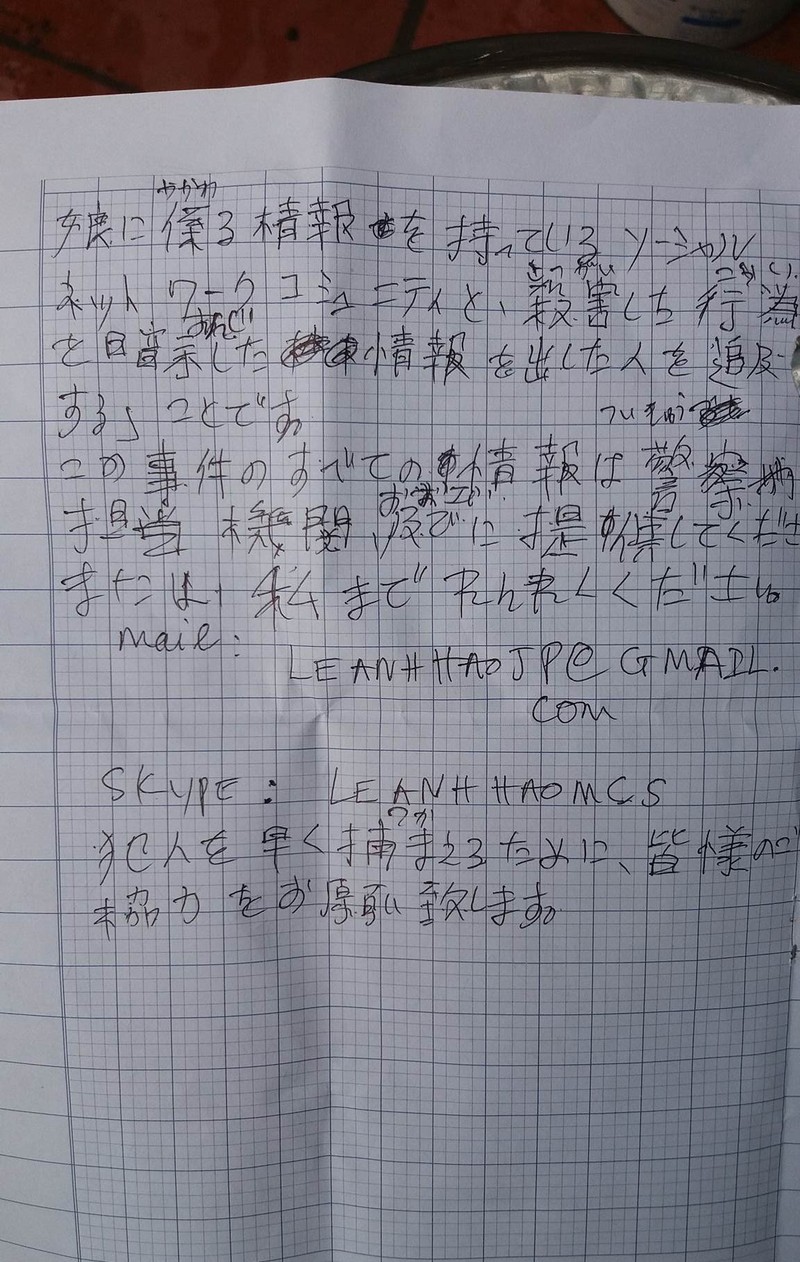 やかわ
娘に係る情報を持っているソーシャル
ネットワークコミュニティと、殺害した行為
を目督示した情報を出した人を追及
する」ことです。
ついきゅう
この事件のすべての情報は警察
担当機関、及びに提供してくださ
または、私までれんれくください。
Mail:
LEANHHAOJP@GMAIL.
COM
SKYPE: LEANHHAOMCS
つか
犯人を早く捕まえるために、皆様のご
協力をお願い致します。